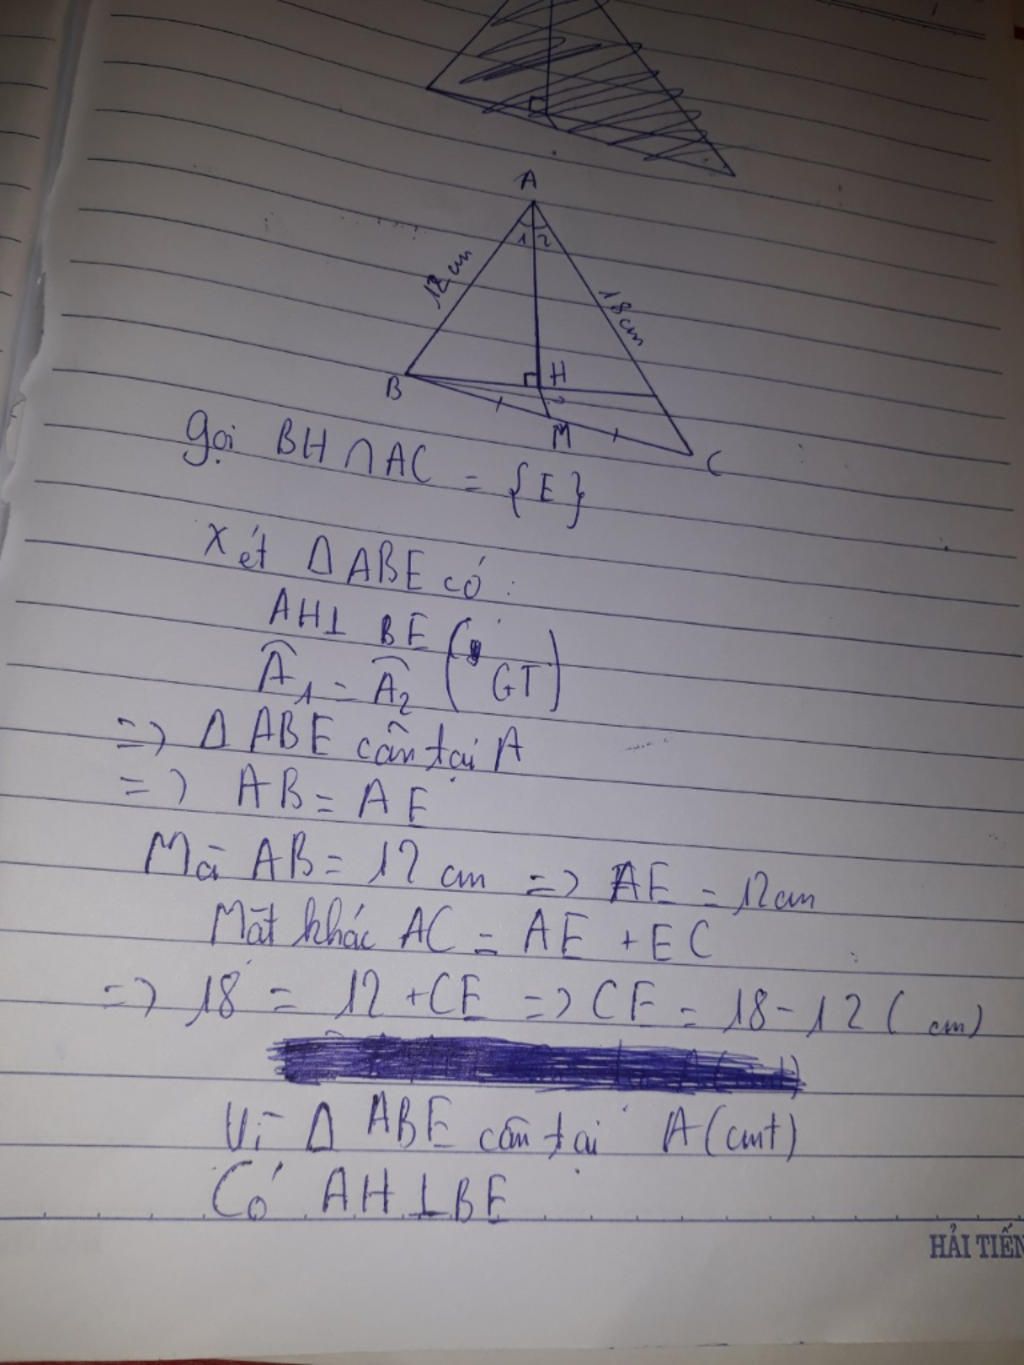 A
1 2
12 cm
18 cm
B
H
M
C
Gọi BH ∩ AC = {E}
Xét Δ ABE có:
AH ⊥ BE
Â1 = Â2 (GT)
=> Δ ABE cân tại A
=> AB = AE
Mà AB = 12 cm => AE = 12 cm
Mặt khác AC = AE + EC
=> 18 = 12 + CE => CE = 18 - 12 (cm)
Vì Δ ABE cân tại A (cmt)
Có AH ⊥ BE
HẢI TIẾN